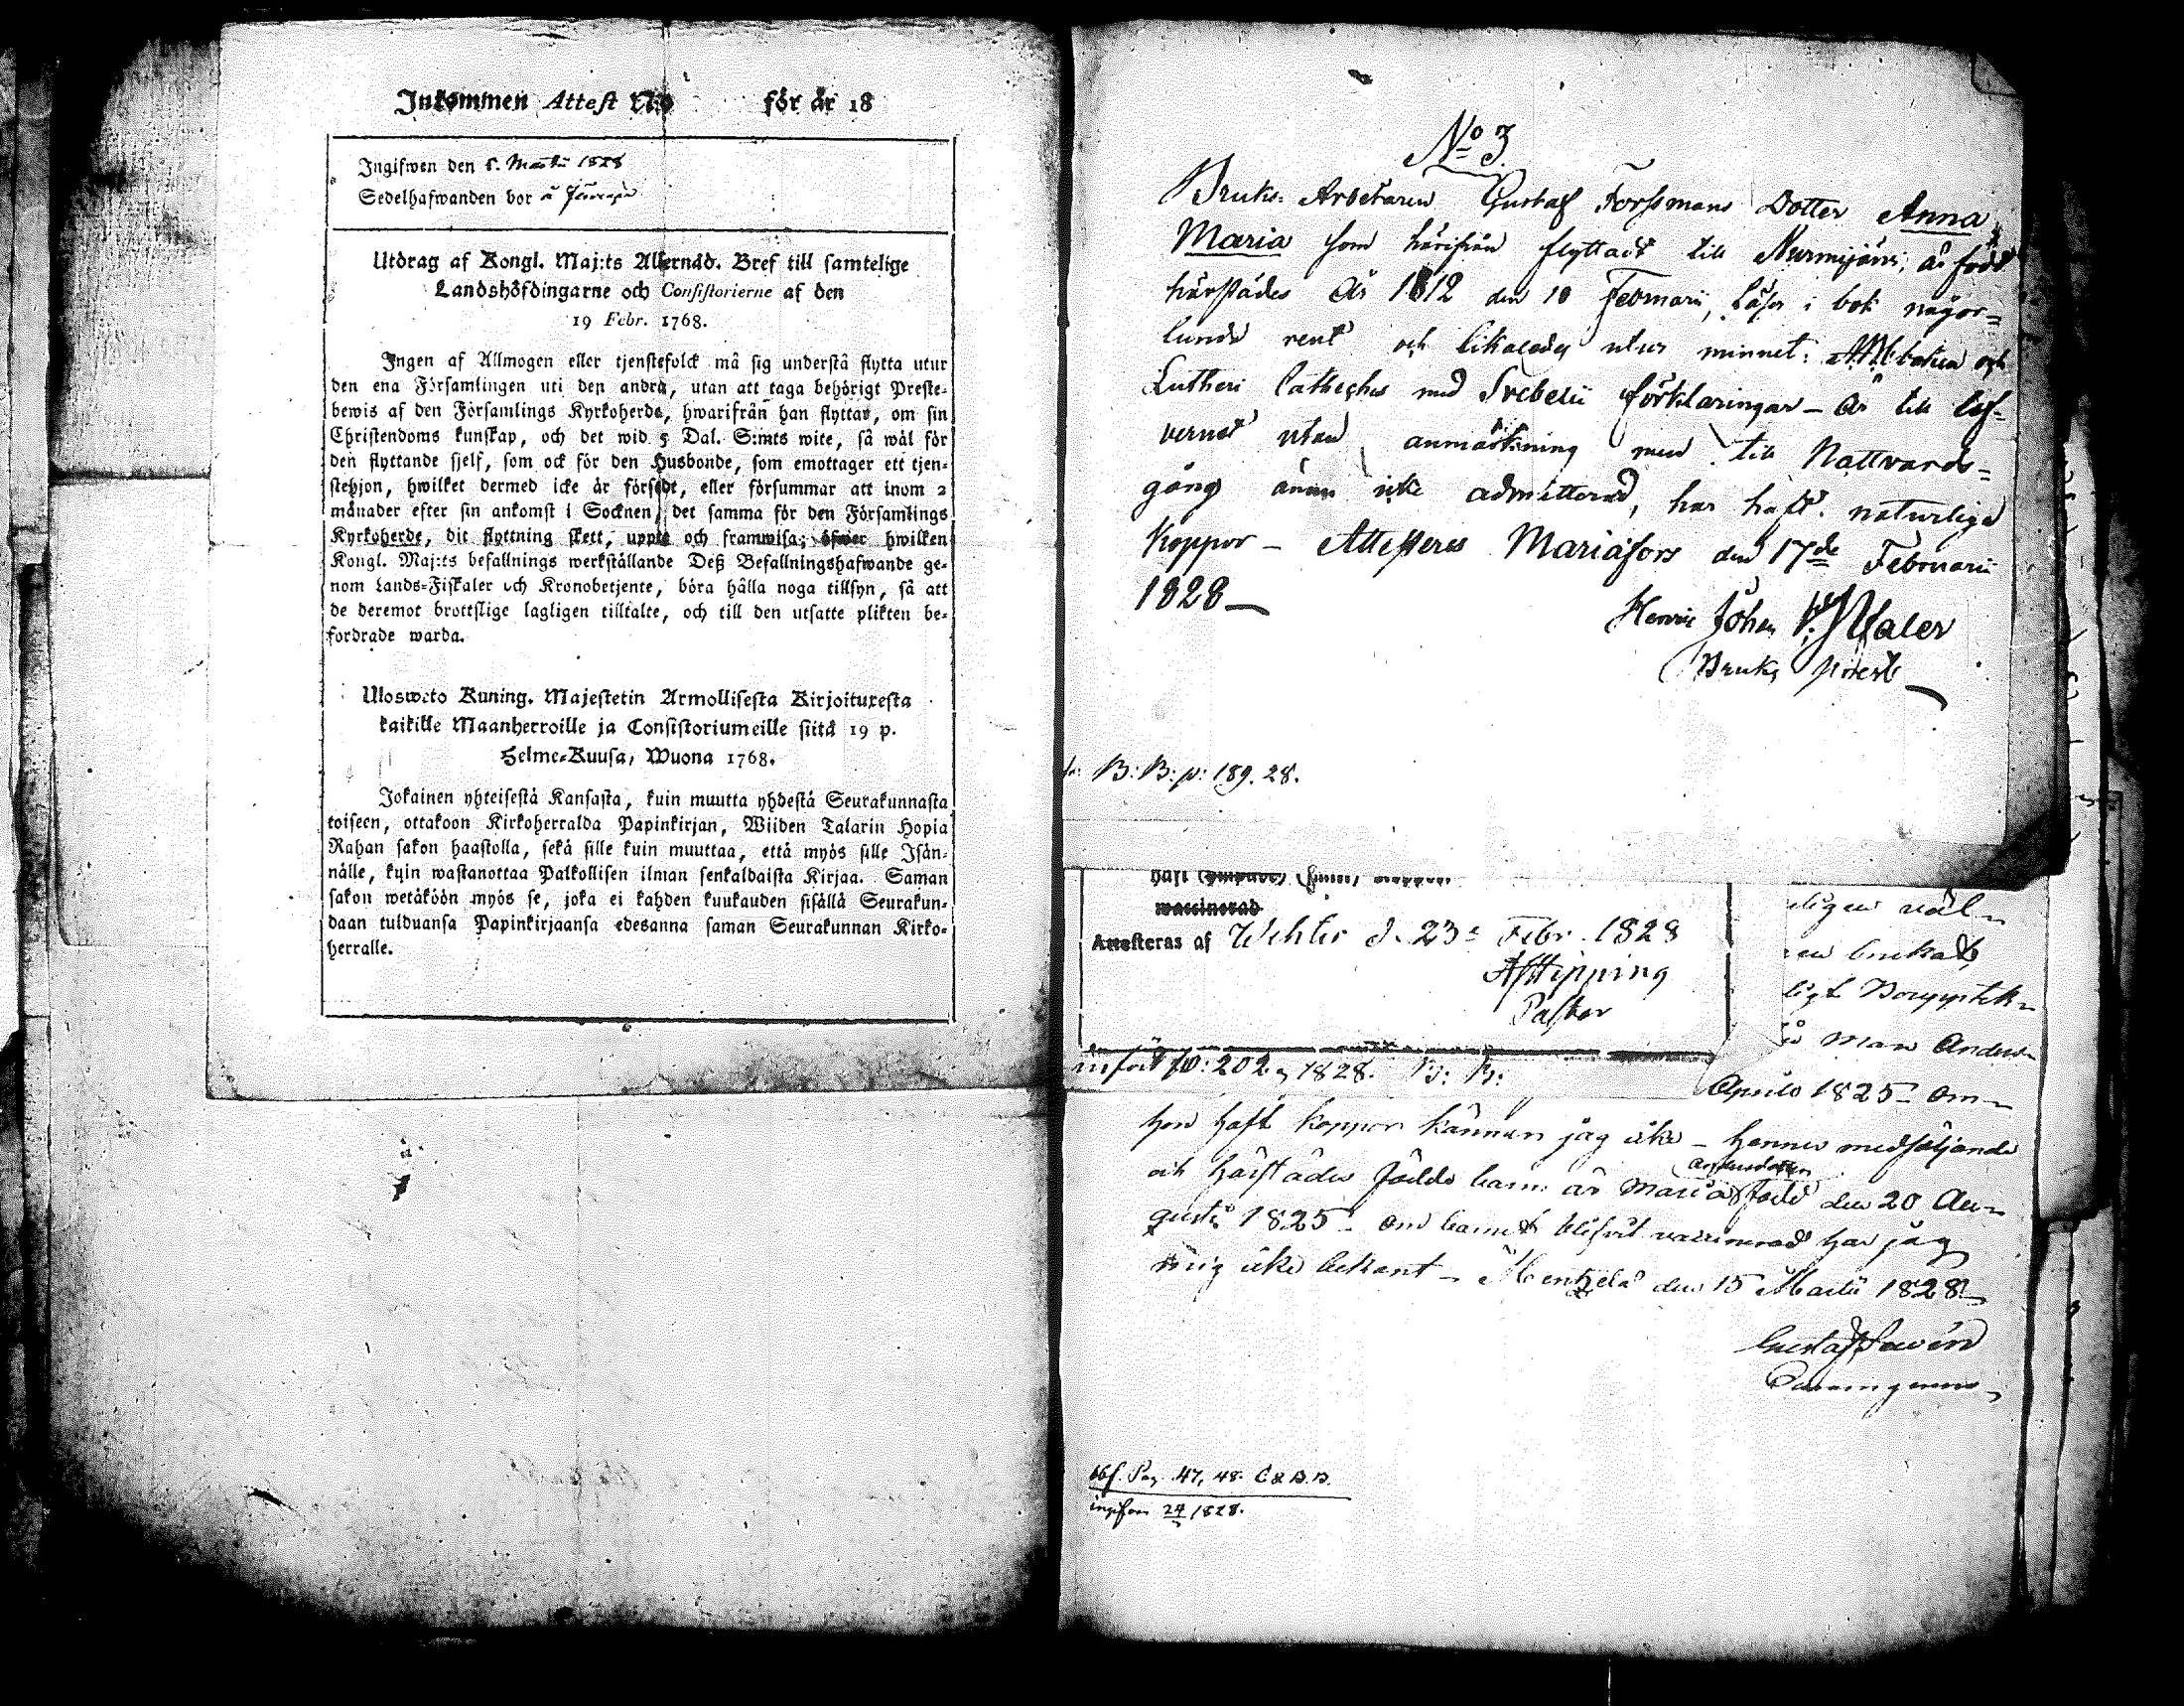 Inkommen Attest No för år 18
Ingifwen den 5. Martii 1828
Sedelhafwanden bor å
Utdrag af Kongl. Maj:ts Allernåd. Bref till samtelige
Landshöfdingarne och Consistorierne af den
19 Febr. 1768.
Ingen af Allmogen eller tjenstefolck må sig understå flytta utur
den ena Församlingen uti den andra, utan att taga behörigt Preste-
bewis af den Församlings Kyrkoherde, hwarifrån han flyttar, om sin
Christendoms kunskap, och det wid 5 Dal. S:mts wite, så wäl för
den flyttande sjelf, som ock för den Husbonde, som emottager ett tjen-
stehjon, hwilket dermed icke är försedt, eller försummar att inom 2
månader efter sin ankomst i Socknen, det samma för den Församlings
Kyrkoherde, dit flyttning skett, uppte och framwisa; öfwer hwilken
Kongl. Maj:ts befallnings werkställande Deß Befallningshafwande ge-
nom Lands-Fiskaler och Kronobetjente, böra hålla noga tillsyn, så att
de deremot brottslige lagligen tilltalte, och till den utsatte plikten be-
fordrade warda.
Uloswåto Kuning. Majestetin Armollisesta Kirjoituxesta
kaikille Maanherroille ja Consistoriumeille siitä 19 p.
Helme-Kuusa, Wuona 1768.
Jokainen yhteisestä Kansasta, kuin muutta yhdestä Seurakunnasta
toiseen, ottakoon Kirkoherralda Papinkirjan, Wiiden Talarin Hopia
Rahan sakon haastolla, sekä sille kuin muuttaa, että myös sille Isän-
nälle, kuin wastanottaa Palkollisen ilman senkaldaista Kirjaa. Saman
sakon wetäköön myös se, joka ei kahden kuukauden sisällä Seurakun-
daan tulduansa Papinkirjaansa edesanna saman Seurakunnan Kirko-
herralle.
No 3.
Bruks Arbetaren Gustaf Forssmans Dotter Anna
Maria som härifrån flyttadt till Nurmijärvi, är född
härstädes År 1812 den 10 Februarii, läser i bok någor=
lunda rent och likaledes utur minnet: ABCboken och
Lutheri Catheches med Svebelii förklaringar - Är till lef-
vernet utan anmärkning men till Nattvards=
gång ännu icke admitterad, har haft naturliga
Koppor - Attesteras Mariæfors den 17de Februarii
1828 -
Henric Johan
Bruks Prest
B: B: p: 189. 28.
haft
waccinerad
Attesteras af Wihtis d. 23 Febr. 1828
Pastor
infört p: 202, 1828. B: B:
Man Anders
Aprils 1825 - om
hon haft koppor känner jag icke - hennes medföljande
och härstädes födde barn är Maria Andersdotter född den 20 Au-
gusti 1825 - om barnet blifvit vaccinerad har jag
mig icke bekant - Mentzelä den 15 Martii 1828 -
Gustaf
Pag. 47, 48. C & B. B.
ingifven 24 1828.